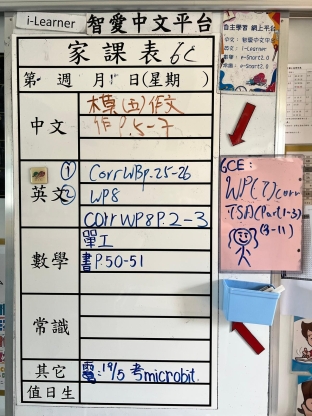 i-Learner 智愛中文平台
家課表 6C
第 週 月 日(星期 )
中文
模(五)作文
作P.5-7
英文
① CorrWBp.25-26
② WP8
corr WP8P.2-3
數學
單工
書P.50-51
常識
其它
電:19/5 考microbit.
值日生
自主學習 網上平台
中文:智愛中文平台
英文:i-Learner
數學:e-Smart2.0
常識:e-Smart2.0
GCE:
WP(7)Corr
TSA(Part1-3)
(3-11)